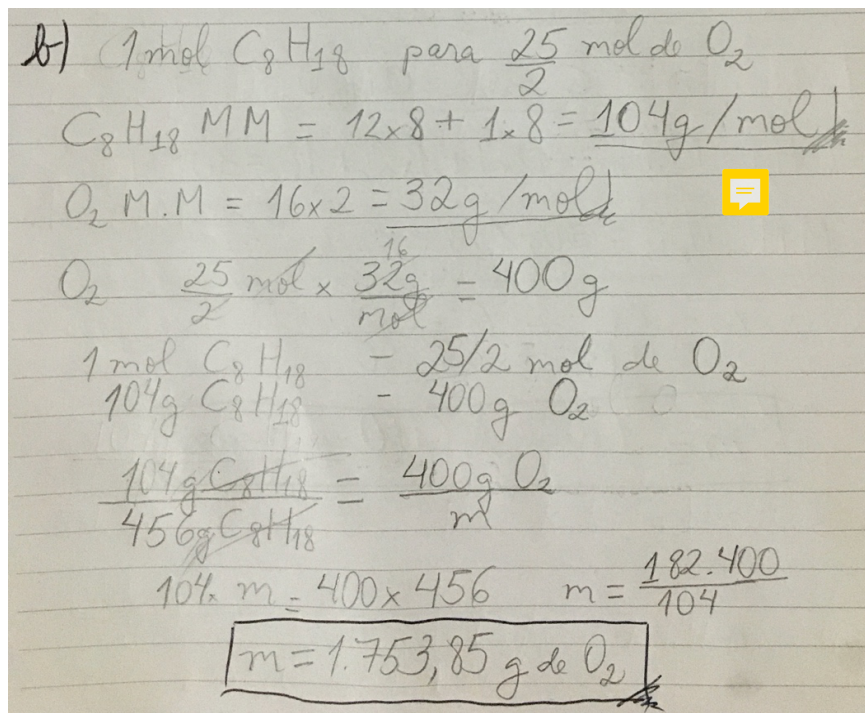 b) 1 mol C₈H₁₈ para 25/2 mol de O₂
C₈H₁₈ MM = 12x8 + 1x8 = 104g/mol
O₂ M.M = 16x2 = 32g/mol
O₂ 25/2 mol x 32g/mol 16 = 400g
1 mol C₈H₁₈ - 25/2 mol de O₂
104g C₈H₁₈ - 400g O₂
104g C₈H₁₈/456g C₈H₁₈ = 400g O₂/m
104x m = 400x456 m = 182.400/104
m = 1.753,85 g de O₂